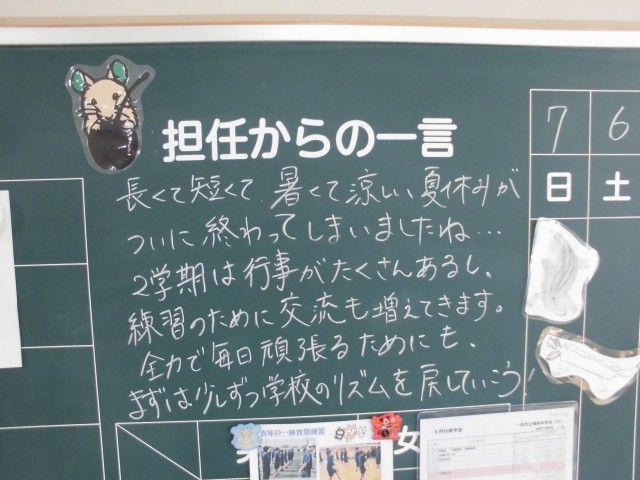 担任からの一言
長くて短くて 暑くて涼しい 夏休みが
ついに終わってしまいましたね…
2学期は行事がたくさんあるし、
練習のために交流も増えてきます。
全力で毎日頑張るためにも、
まずは少しずつ学校のリズムを戻していこう!
7 6
日 土
女